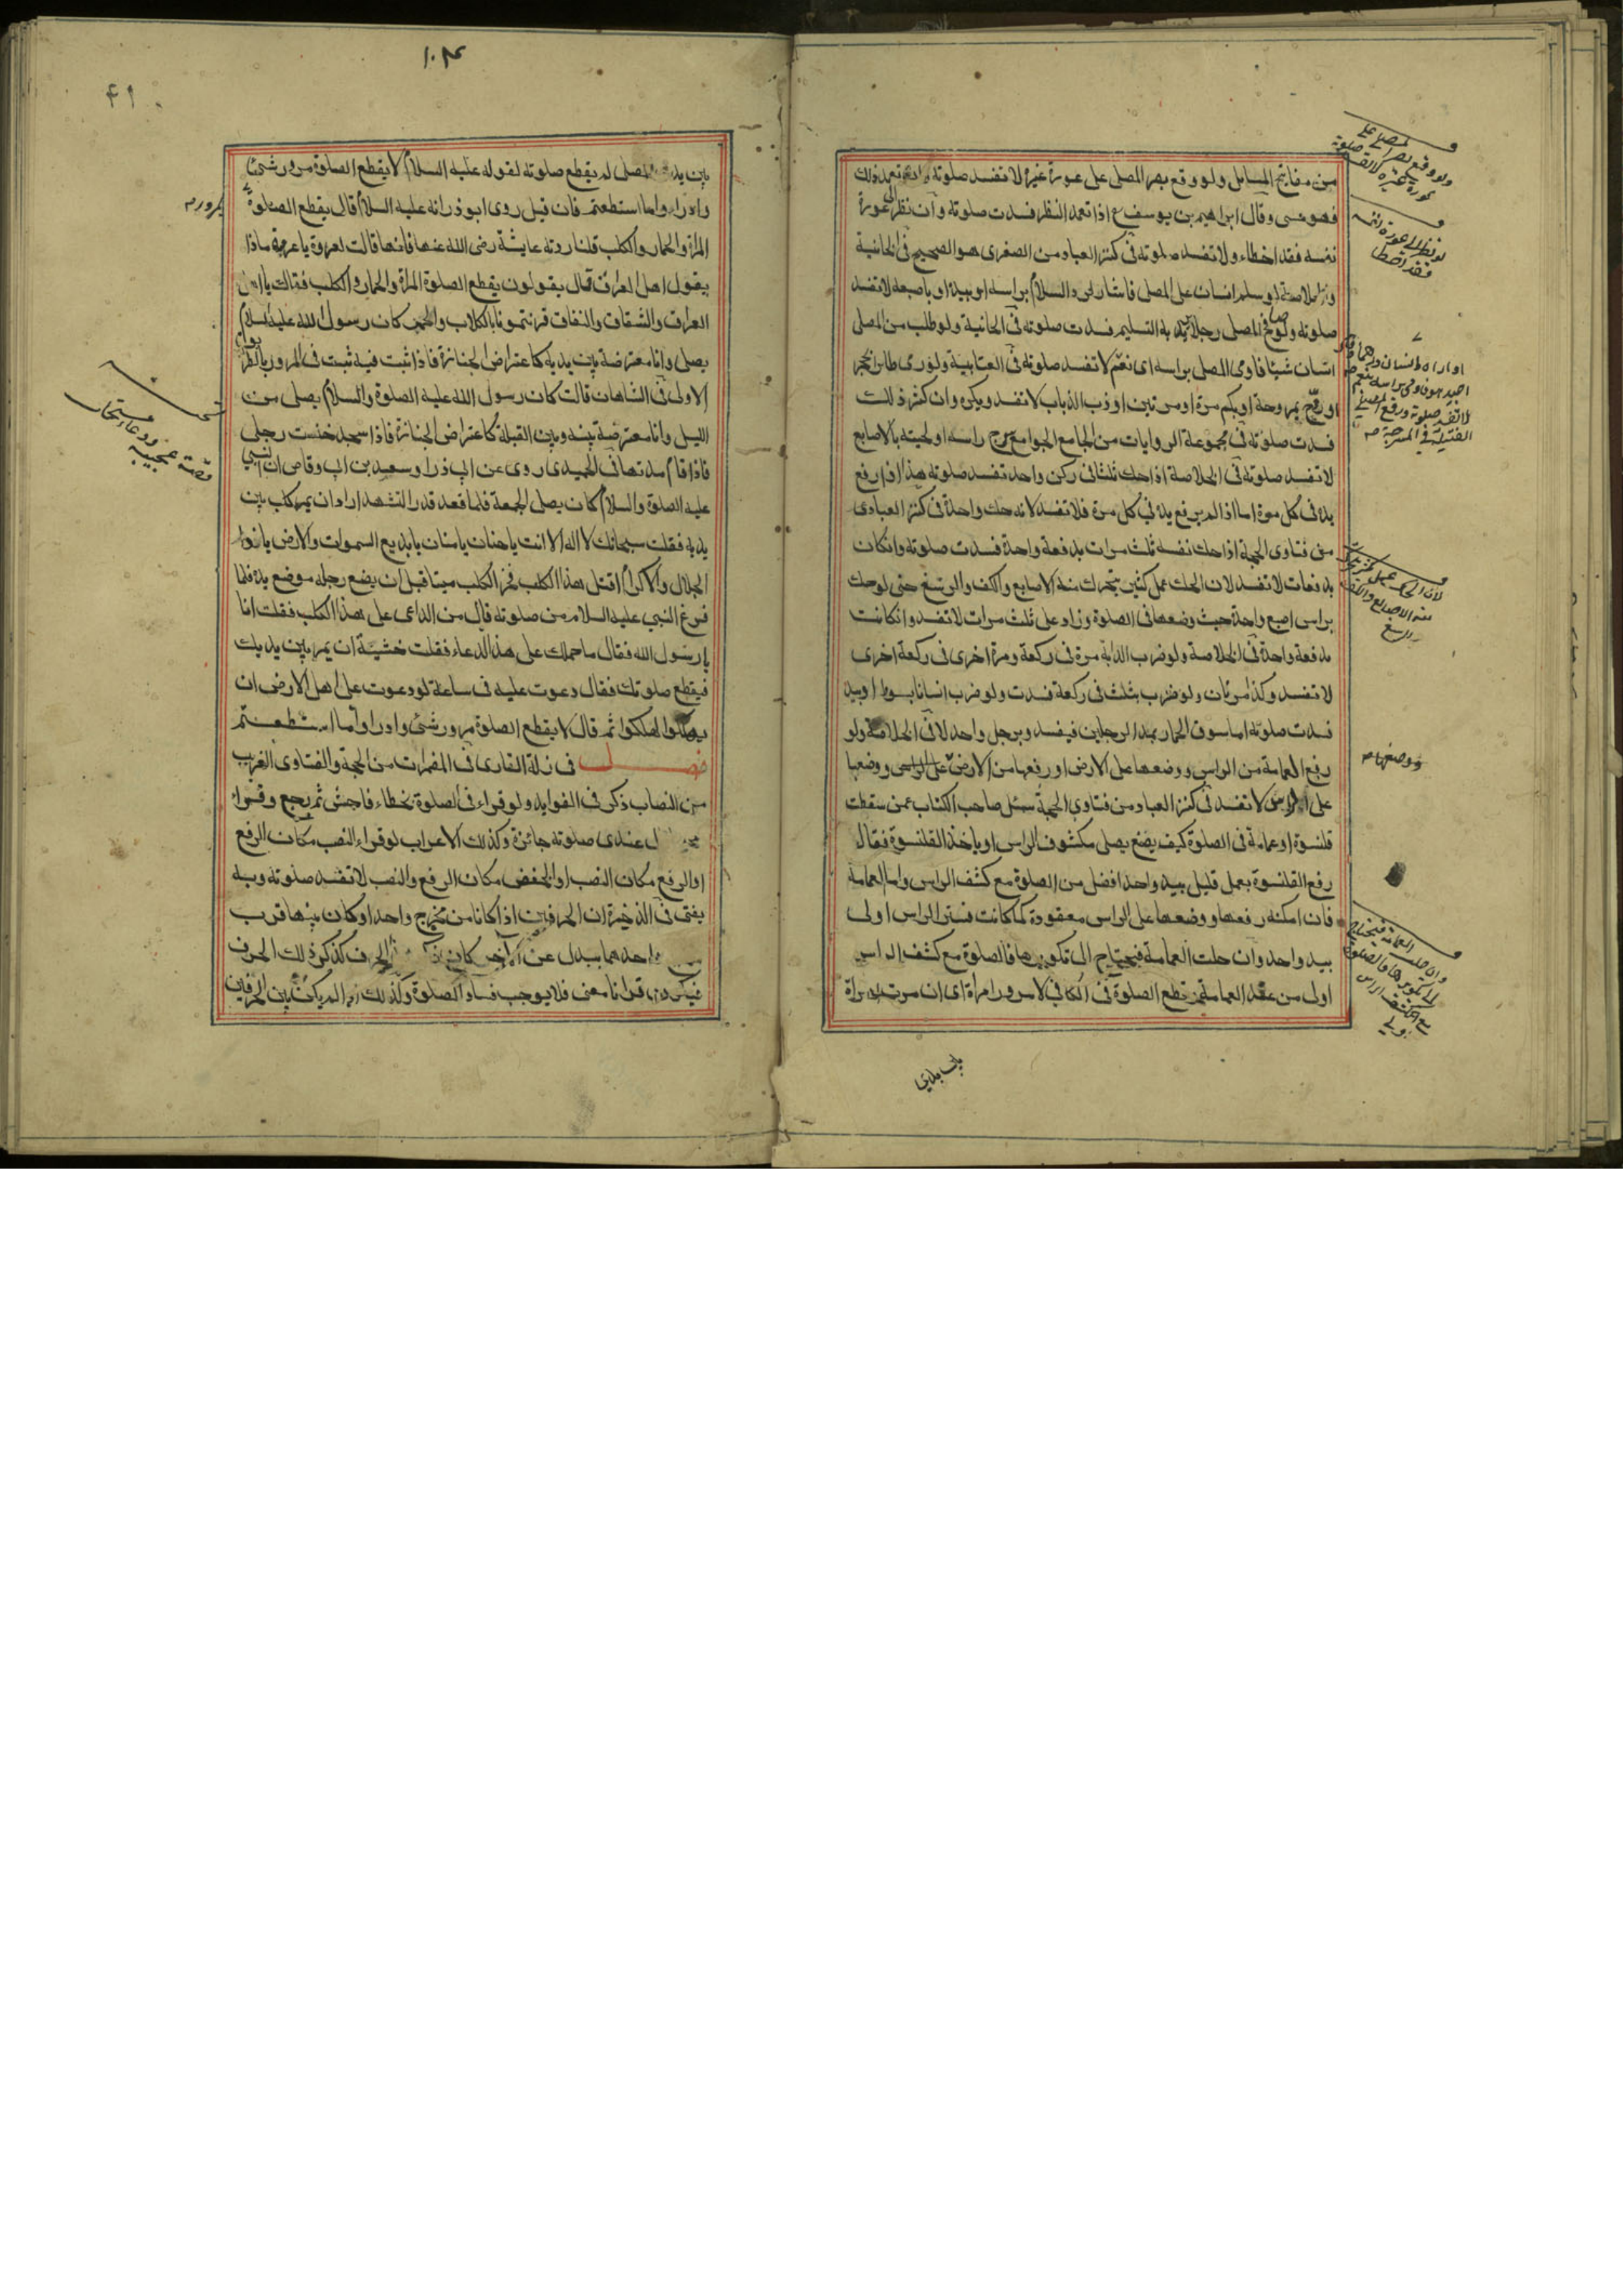 من مفاتح المسايل ولو وقع بصر المصلى على عورة غيره لا تفسد صلوته وان تعمد ذلك
فهو مسى وقال ابراهيم بن يوسف اذا تعمد النظر فسدت صلوته وان نظر الى عورة
نفسه فقد اخطاء ولا تفسد صلوته فى كنز العباد من الصغرى هو الصحيح فى الخانية
لو سلم انسان على المصلى فاشار لرد السلام براسه او بيده او باصبعه لا تفسد
صلوته ولو صافح المصلى رجلا يريد به التسليم فسدت صلوته فى الخانية ولو طلب من المصلى
انسان شيئا فاومى المصلى براسه اى نعم لا تفسد صلوته فى العتابية ولو رمى طائرا بحجر
او روّح بمروحة او بكم مرة او مرتين او ذب الذباب لا تفسد ويكره وان كثر ذلك
فسدت صلوته فى مجموعة الروايات من الجامع الجوامع راسه او لحيته بالاصابع
لا تفسد صلوته فى الخلاصة اذا حك ثلثا فى ركن واحد تفسد صلوته هذا اذا رفع
يده فى كل مرة اما اذا لم يرفع يده فى كل مرة فلا تفسد لانه حك واحدة فى كنز العباد
من فتاوى الحجة اذا حك نفسه ثلث مرات بدفعة واحدة فسدت صلوته وان كان
بدفعات لا تفسد لان الحك عمل كثير يتحرك منه الاصابع والكف والرسغ حتى لو حك
براس اصبع واحدة حيث وضعها فى الصلوة وزاد على ثلث مرات لا تفسد وان كانت
بدفعة واحدة فى الخلاصة ولو ضرب الدابة مرة فى ركعة ومرة اخرى فى ركعة اخرى
لا تفسد وكذا مرتان ولو ضرب بثلث فى ركعة فسدت ولو ضرب انسانا بسوط او بيد
فسدت صلوته اما سوق الحمار بمد الرجلين فيفسد وبرجل واحد لا فى الخلاصة ولو
رفع العمامة من الراس ووضعها على الارض او رفعها من الارض على الراس ووضعها
على الراس لا تفسد فى كنز العباد من فتاوى الحجة سئل صاحب الكتاب عمن سقطت
قلنسوة او عمامة فى الصلوة كيف يصنع يصلى مكشوف الراس او ياخذ القلنسوة فقال
رفع القلنسوة بعمل قليل بيد واحد افضل من الصلوة مع كشف الراس واما العمامة
فان امكنه رفعها ووضعها على الراس معقودة كما كانت فستر الراس اولى
بيد واحد وان حلت العمامة فيحتاج الى تكويرها فالصلوة مع كشف الراس
اولى من عقد العمامة وقطع الصلوة فى الكافى لا مرور امراة اى ان مرت امراة
بين يدى
ولو وقع بصر المصلى على
عورة غيره لا تفسد صلوته
لو نظر الى عورة نفسه
فقد اخطا
لا تفسد صلوته
لان الحك عمل كثير يتحرك
منه الاصابع والكف
والرسغ
ووضعها
وان حلت العمامة فيحتاج
الى تكويرها فالصلوة
مع كشف الراس
اولى
١٠٤
٤١
بين يدى المصلى لم يقطع صلوته لقوله عليه السلام لا يقطع الصلوة مرور شئ
وادراوا ما استطعتم فان قيل روى ابو ذر انه عليه السلام قال يقطع الصلوة
المراة والحمار والكلب قلنا ردته عايشة رضى الله عنها فانها قالت لعروة يا عروة ماذا
يقول اهل العراق قال يقولون يقطع الصلوة المراة والحمار والكلب فقالت يا اهل
العراق والشقاق والنفاق قرنتمونا بالكلاب والحمر كان رسول الله عليه السلام
يصلى وانا معترضة بين يديه كاعتراض الجنازة فاذا ثبت فيه ثبت فى المرور بالطريق
الاولى فى الشاهان قالت كان رسول الله عليه الصلوة والسلام يصلى من
الليل وانا معترضة بينه وبين القبلة كاعتراض الجنازة فاذا سجد خنست رجلى
فاذا قام مددتها فى الحميدى روى عن ابى ذر او سعيد بن ابى وقاص ان النبى
عليه الصلوة والسلام كان يصلى الجمعة فلما قعد قدر التشهد اراد ان يمر كلب بين
يديه فقلت سبحانك لا اله الا انت يا حنان يا منان يا بديع السموات والارض يا ذو
الجلال والاكرام اقتل هذا الكلب فخر الكلب ميتا قبل ان يضع رجله موضع يده فلما
فرغ النبى عليه السلام من صلوته قال من الداعى على هذا الكلب فقلت انا
يا رسول الله فقال ما حملك على هذا الدعاء فقلت خشية ان يمر بين يديك
فيقطع صلوتك فقال دعوت عليه فى ساعة لو دعوت على اهل الارض ان
يهلكوا لهلكوا ثم قال لا يقطع الصلوة مرور شئ وادراوا ما استطعتم
فصل فى زلة القارى فى المضمرات من الحجة والفتاوى الغرايب
من النصاب ذكر فى الفوايد ولو قراء فى الصلوة بخطاء فاحش ثم رجع وقراء
عندى صلوته جائزة وكذلك الاعراب لو قراء النصب مكان الرفع
او الرفع مكان النصب او الخفض مكان الرفع والنصب لا تفسد صلوته وبه
يفتى فى الذخيرة ان الحرفين اذا كانا من مخرج واحد او كان بينهما قرب
واحدهما يبدل عن الآخر كان الحرف كذكر ذلك الحرف
فيكون قرانا معنى فلا يوجب فساد الصلوة وكذلك اذا لم يكن بين الحرفين
قصة عجيبة ودعاء مستجاب